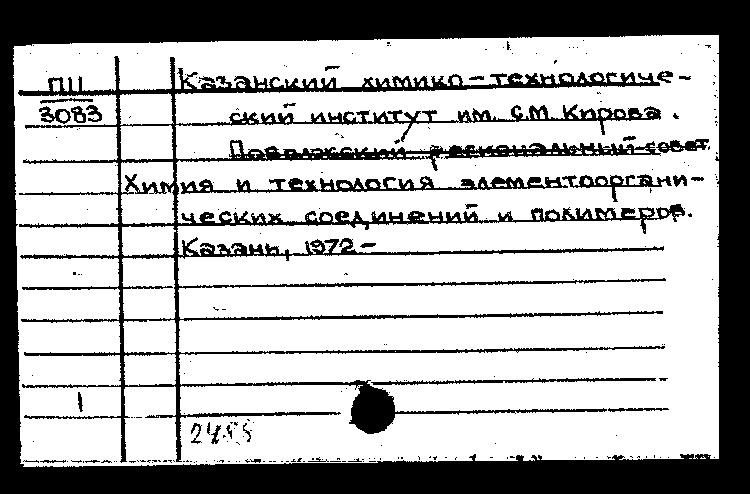 ПII
3083
Казанский химико-технологиче-
ский институт им. С.М. Кирова.
Поволжский региональный совет.
Химия и технология элементооргани-
ческих соединений и полимеров.
Казань, 1972-